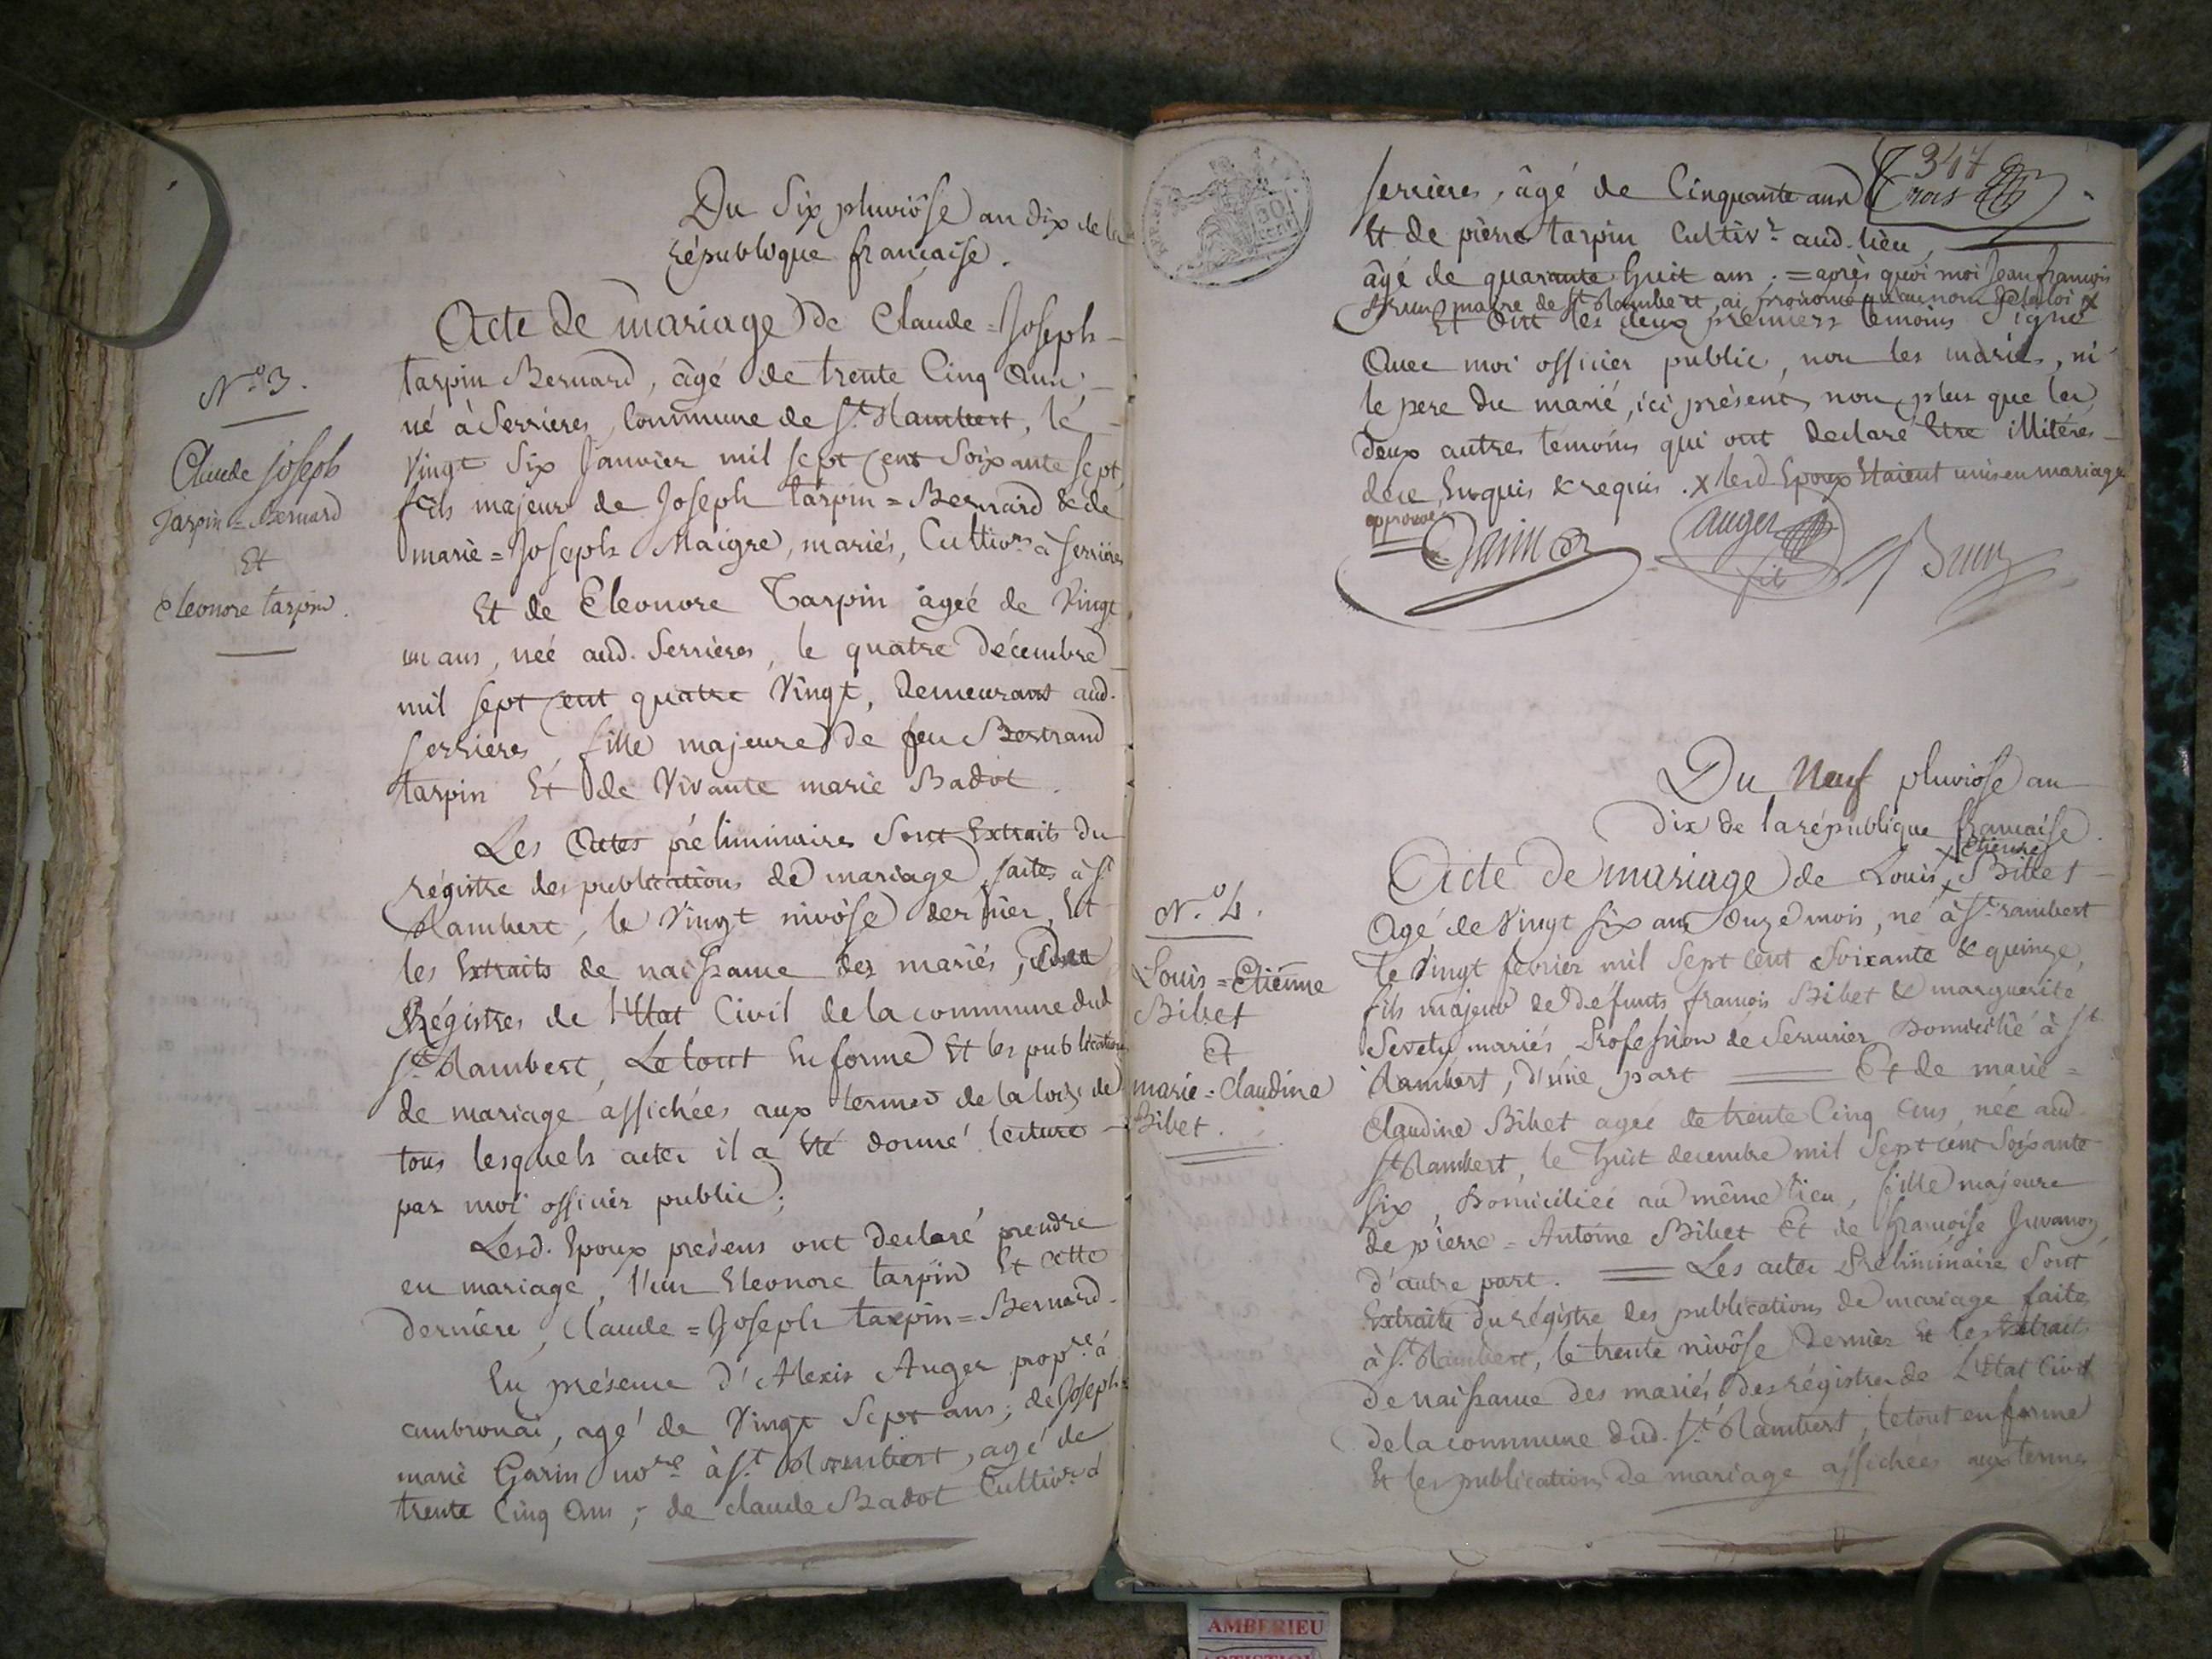 Du Six pluviôse an dix de la
république française.
Acte de mariage de Claude=Joseph
tarpin Bernard, âgé de trente Cinq ans,
né à Serrieres, Commune de St. Rambert, le
Vingt Six Janvier mil sept cent Soixante sept,
fils majeur de Joseph tarpin=Bernard & de
marie=Joseph Maigre, mariés, Cultivrs à serrieres
Et de Eleonore Tarpin agée de Vingt
un ans, née aud. Serrieres, le quatre décembre
mil sept cent quatre Vingt, demeurant aud.
serrieres, fille majeure de feu Bertrand
tarpin Et de Vivante marie Badot.
N.o 3.
Claude joseph
Tarpin=Bernard
Et
Eleonore tarpin.
Les Actes préliminaires Sont Extraits du
régistre des publications de mariage, faites à St
Rambert, le Vingt nivôse dernier, Et
les Extraits de naissance des mariés, des
Régistres de l'Etat Civil de la commune dud
St. Rambert, Le tout En forme Et les publications
de mariage affichées aux termes de la loi; de
tous lesquels actes il a été donné lecture
par moi officier public;
Lesd. Epoux présens ont declaré prendre
en mariage, l'un Eleonore tarpin Et cette
derniere, Claude=Joseph tarpin=Bernard.
En présence d'Alexis Auger propre. à
ambronai, agé de Vingt Sept ans; de Joseph=
marie Garin nore. à St. Rambert, agé de
trente Cinq Ans; de claude Badot Cultivr. à
347
trois
serrieres, âgé de Cinquante ans
Et de pierre tarpin Cultivr. aud. lieu,
âgé de quarante huit ans; = après quoi moi Jean françois
maire de St Rambert, ai prononcé qu'au nom de la loi x
Et Ont les deux premiers temoins Signé
Avec moi officier public, non les mariés, ni
le pere du marié, ici présent, non plus que les
deux autres temoins qui ont declaré être illitérés
de ce Enquis & requis. x lesd Epoux étaient unis en mariage
approuvé
auger
fils
Du Neuf pluviôse an
dix de la république française.
x Etienne
Acte de mariage de Louis x Bibet
Agé de Vingt six ans onze mois, né à St. rambert
le Vingt février mil Sept cent Soixante & quinze,
fils majeur de defunts françois Bibet & marguerite
mariés Profession de Serrurier Domicilié à St
Rambert, d'une part Et de marie=
Claudine Bibet agée de trente Cinq Ans, née aud.
St. Rambert, le huit decembre mil Sept cent Soixante
six, Domiciliée au même lieu, fille majeure
de pierre=Antoine Bibet Et de françoise Juvanon,
d'autre part. Les actes Préliminaire Sont
Extraits du régistre des publications de mariage faites
à St. Rambert, le trente nivôse Dernier Et les Extraits
de naissance des mariés, des régistres de L'Etat Civil
de la commune dud. St. Rambert, le tout en forme
Et les publications de mariage affichées aux termes
N.o 4.
Louis=Etienne
Bibet
Et
marie=Claudine
Bibet.
AMBERIEU